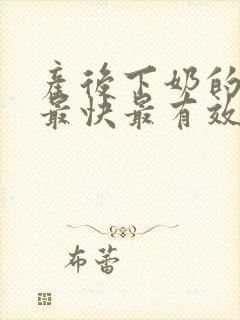 產後下奶的
最快最有效
布蕾